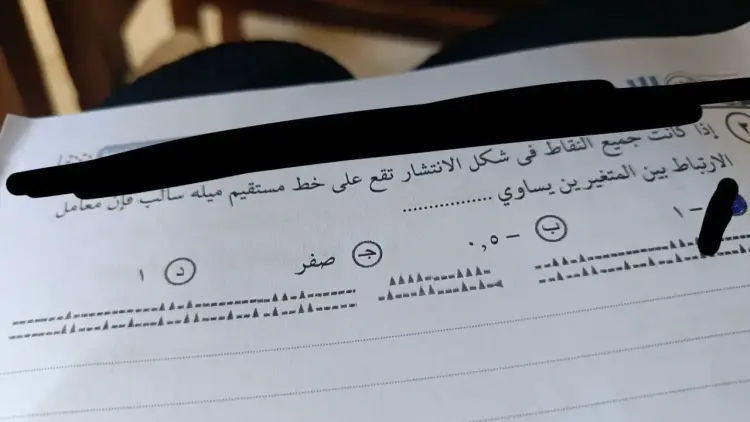 إذا كانت جميع النقاط فى شكل الانتشار تقع على خط مستقيم ميله سالب فإن معامل
الارتباط بين المتغيرين يساوي ................
− ١ ب − ٠,٥ جـ صفر د ١